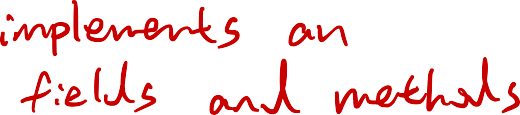 implements an
fields and methods